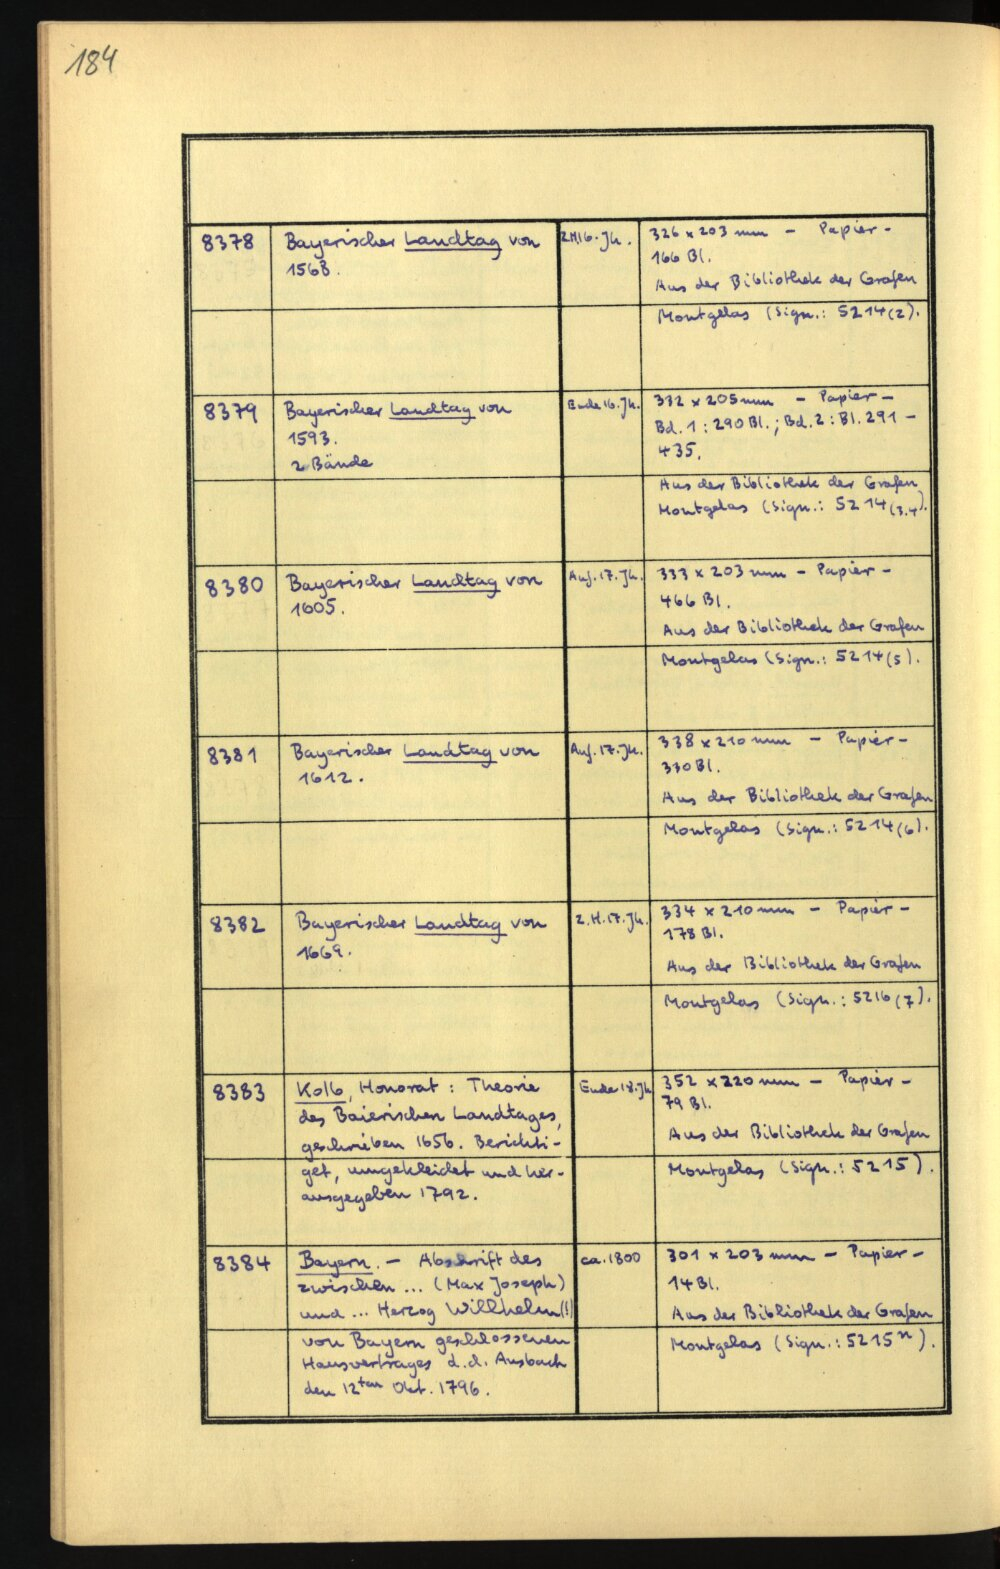 184
8378
Bayerischer Landtag von
1563.
2.H.16.Jh.
326 x 203 mm – Papier –
166 Bl.
Aus der Bibliothek der Grafen
Montgelas (Sign.: 5214(2).
8379
Bayerischer Landtag von
1593.
2 Bände
Ende 16.Jh.
332 x 205 mm – Papier –
Bd. 1: 290 Bl.; Bd. 2: Bl. 291 –
435.
Aus der Bibliothek der Grafen
Montgelas (Sign.: 5214(3.4).
8380
Bayerischer Landtag von
1605.
Anf. 17. Jh.
333 x 203 mm – Papier –
466 Bl.
Aus der Bibliothek der Grafen
Montgelas (Sign.: 5214(5).
8381
Bayerischer Landtag von
1612.
Anf. 17. Jh.
338 x 210 mm – Papier –
330 Bl.
Aus der Bibliothek der Grafen
Montgelas (Sign.: 5214(6).
8382
Bayerischer Landtag von
1669.
2.H.17.Jh.
334 x 210 mm – Papier –
178 Bl.
Aus der Bibliothek der Grafen
Montgelas (Sign.: 5216(7).
8383
Kolb, Honorat: Theorie
des Baierischen Landtages,
geschrieben 1656. Berichti-
get, umgekleidet und her-
ausgegeben 1792.
Ende 18.Jh
352 x 220 mm – Papier –
79 Bl.
Aus der Bibliothek der Grafen
Montgelas (Sign.: 5215).
8384
Bayern. – Abschrift des
zwischen ... (Max Joseph)
und ... Herzog Willhelm(!)
von Bayern geschlossenen
Hausvertrages d.d. Ansbach
den 12ten Okt. 1796.
ca. 1800
301 x 203 mm – Papier –
14 Bl.
Aus der Bibliothek der Grafen
Montgelas (Sign.: 5215ⁿ).